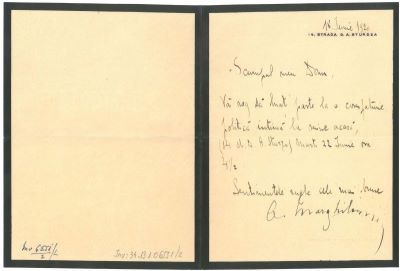 16 Iunie 1920
14, STRADA D. A. STURDZA
Scumpul meu Domn,
Vă rog să luați parte la o consfătuire
politică intimă la mine acasă,
14 d. D. A. Sturza, Marți 22 Iunie ora
4½
Sentimentele mele cele mai bune
A. Marghiloman
Inv. 6551/2
Inv: 34.131.06551/2